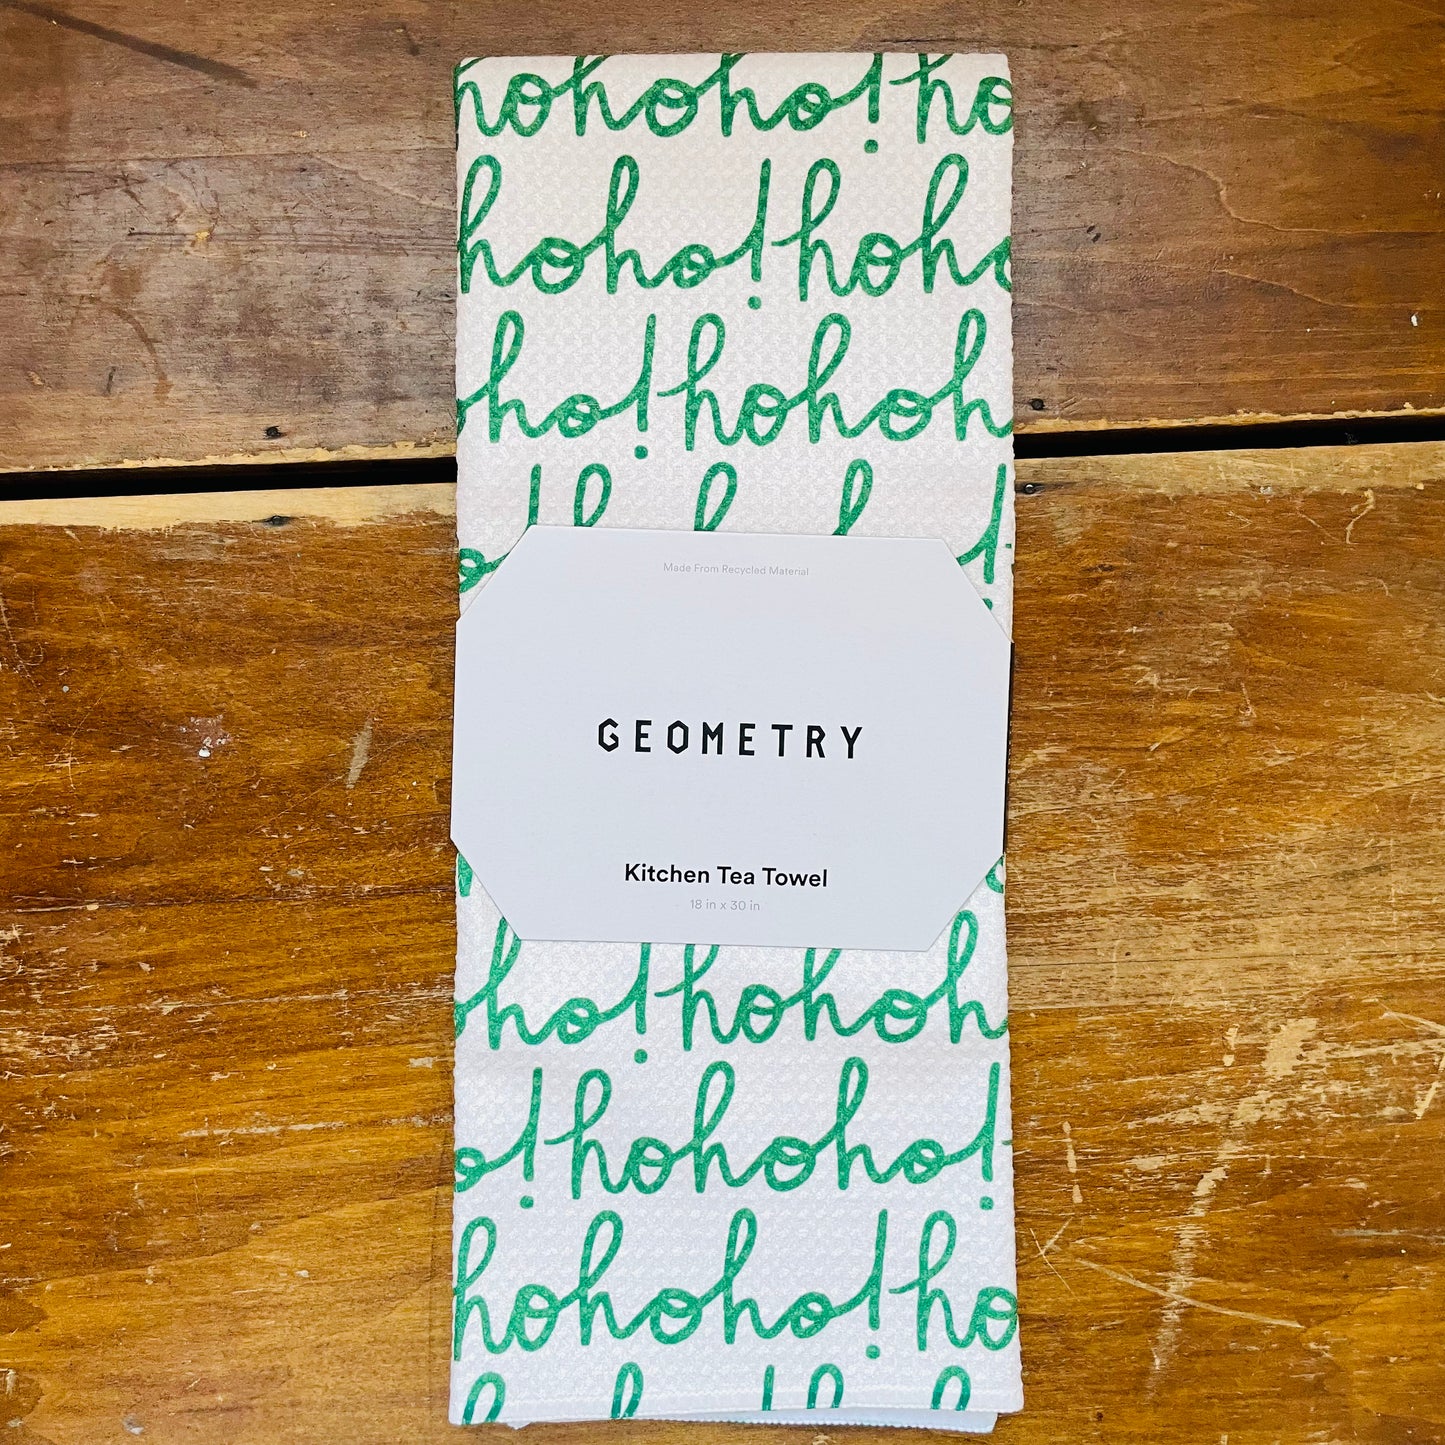 hohoho! ho
hoho! hoho
ho! hohoh
Made From Recycled Material
GEOMETRY
Kitchen Tea Towel
18 in x 30 in
ho! hohoh
o! hohoho!
hohoho! ho